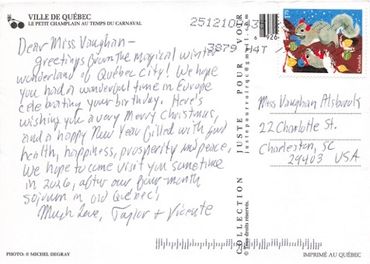 VILLE DE QUÉBEC
LE PETIT CHAMPLAIN AU TEMPS DU CARNAVAL
Dear Miss Vaughan —
Greetings from the magical winter
wonderland of Québec City! We hope
you had a wonderful time in Europe
celebrating your birthday. Here's
wishing you a very Merry Christmas,
and a happy New Year filled with fun,
health, happiness, prosperity and peace.
We hope to come visit you sometime
in 2026, after our four-month
sojourn in old Québec!
Much love, Taylor + Vicente
PHOTO: © MICHEL DEGRAY
COLLECTION JUSTE POUR VOIR
© Tous droits réservés.
251210
3879
Canada
Miss Vaughan
22 Charlotte St.
Charleston, SC
29403 USA
IMPRIMÉ AU QUÉBEC